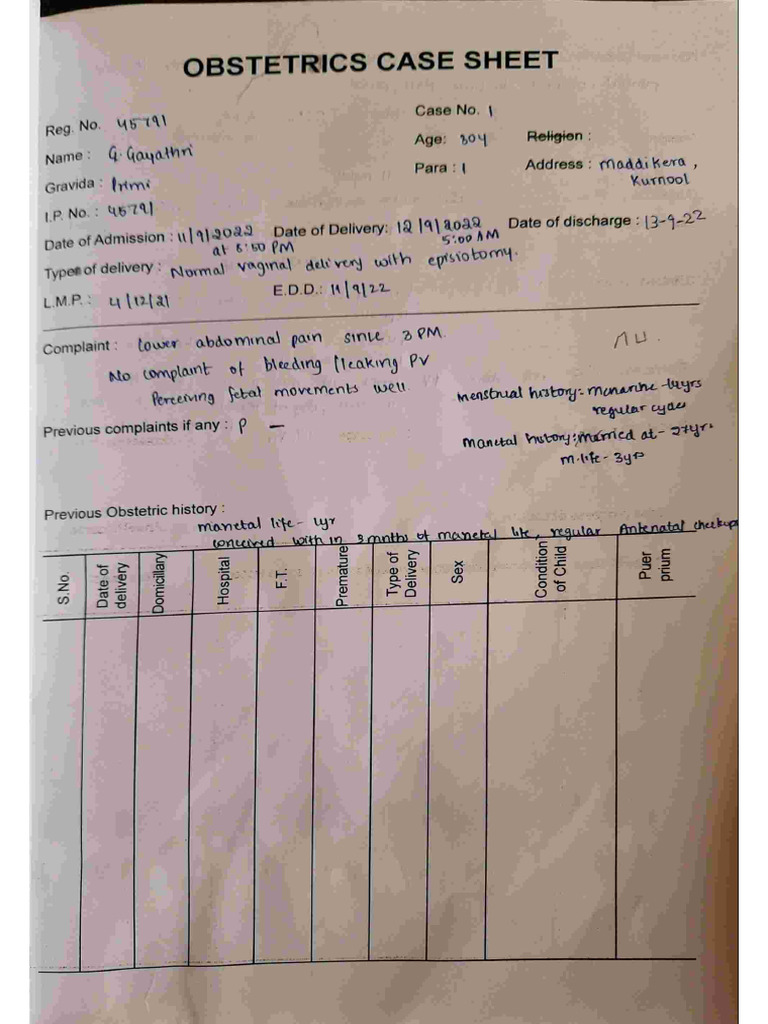 OBSTETRICS CASE SHEET
Reg. No. 45791 Case No. 1
Name : G. Gayathri Age: 30y Religion :
Gravida : Primi Para : 1 Address : Maddikera,
Kurnool
I.P. No. : 45791
Date of Admission : 11/9/2022 Date of Delivery: 12/9/2022 Date of discharge : 13-9-22
at 5:50 PM 5:00 AM
Type of delivery : Normal vaginal delivery with episiotomy.
L.M.P. : 4/12/21 E.D.D.: 11/9/22
Complaint : lower abdominal pain since 3 PM.
No complaint of bleeding / leaking PV
Perceiving fetal movements well.
menstrual history:- menarche -14yrs
regular cycles
Previous complaints if any : P —
marietal history:- married at - 27yrs
m.life - 3yrs
Previous Obstetric history :
marietal life - 1yr
conceived with in 3 mnths of marietal life, regular Antenatal checkups
S.No.
Date of delivery
Domiciliary
Hospital
F.T.
Premature
Type of Delivery
Sex
Condition of Child
Puer prium